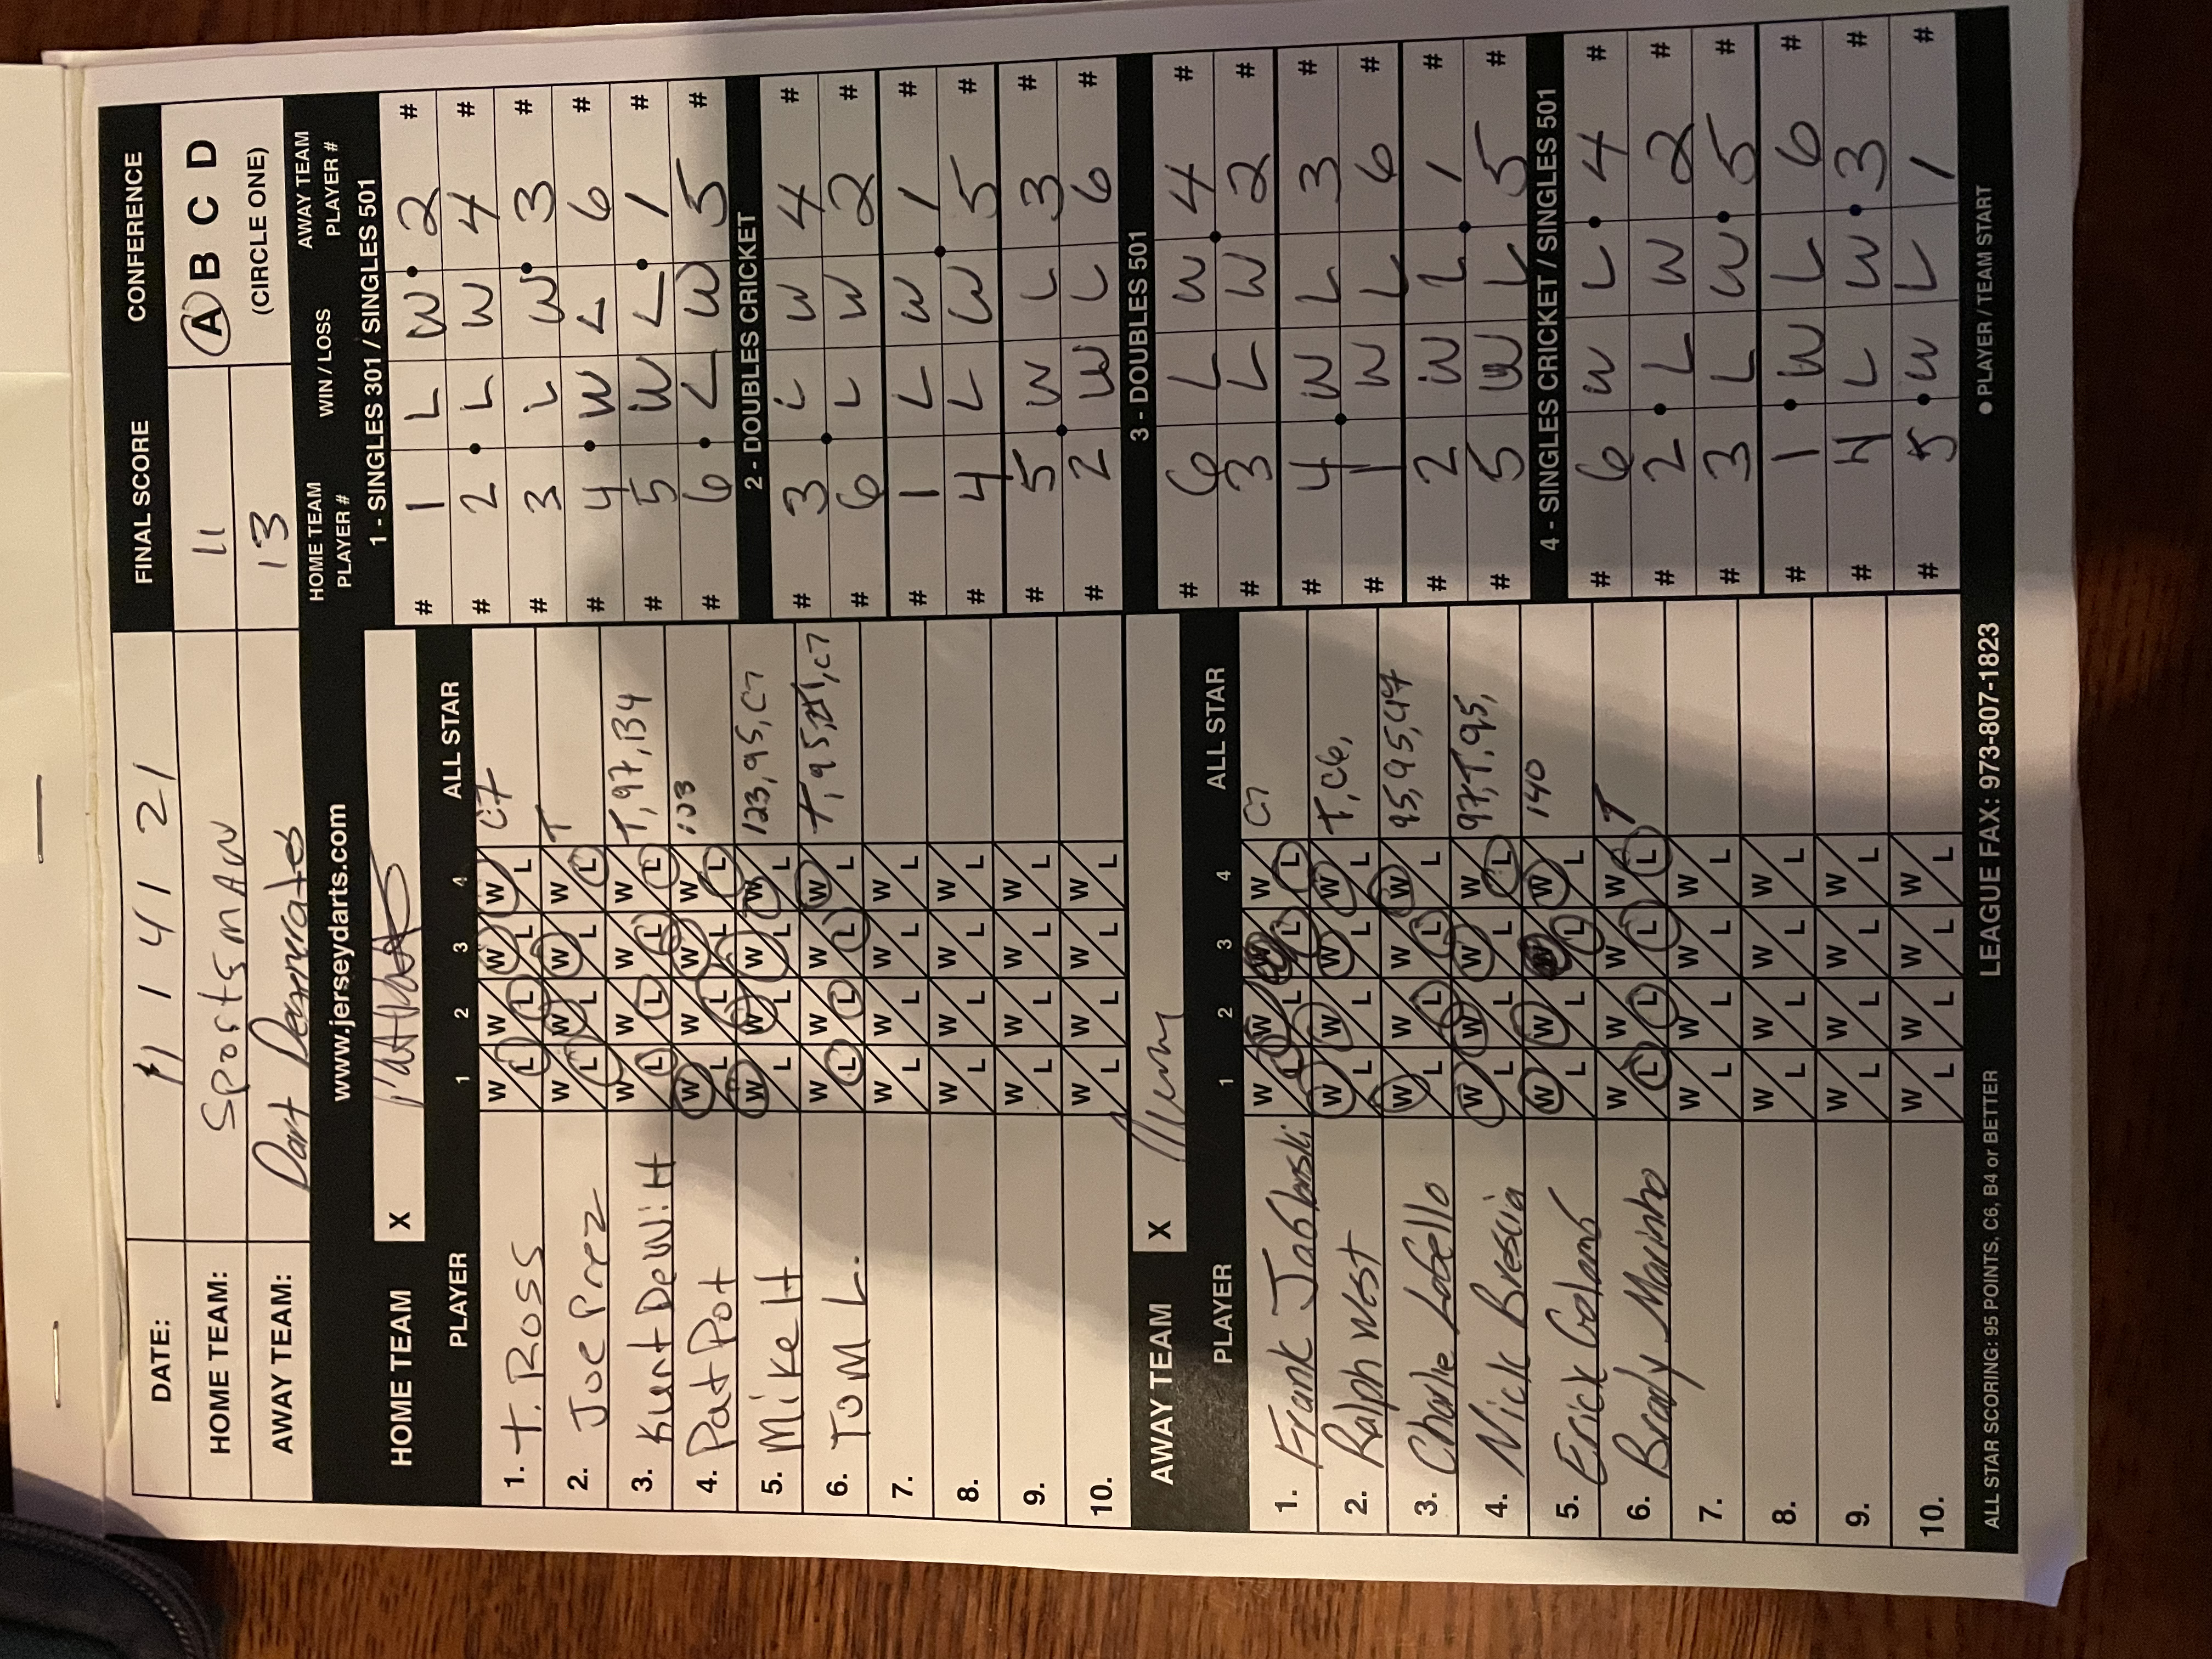 DATE: 11 14 21 FINAL SCORE CONFERENCE
HOME TEAM: SportsmAN 11 A B C D
AWAY TEAM: Dart Degenerates 13 (CIRCLE ONE)
www.jerseydarts.com
HOME TEAM PLAYER # WIN / LOSS AWAY TEAM PLAYER #
HOME TEAM X
PLAYER 1 2 3 4 ALL STAR
1. T. Ross W L W L W L W L C7
2. Joe Prez W L W L W L W L T
3. Kurt DeWitt W L W L W L W L T, 97, B4
4. Pat Pot W L W L W L W L 123
5. Mike H W L W L W L W L 123, 95, C7
6. Tom L. W L W L W L W L T, 95, C7
7. W L W L W L W L
8. W L W L W L W L
9. W L W L W L W L
10. W L W L W L W L
AWAY TEAM X
PLAYER 1 2 3 4 ALL STAR
1. Frank Jablonski W L W L W L W L C7
2. Ralph West W L W L W L W L T, C6,
3. Charlie LoBello W L W L W L W L 95, 95,
4. Nick Brescia W L W L W L W L 97, T, 95,
5. Erick W L W L W L W L 140
6. Brady Marinho W L W L W L W L T
7. W L W L W L W L
8. W L W L W L W L
9. W L W L W L W L
10. W L W L W L W L
1 - SINGLES 301 / SINGLES 501
# 1 L W 2 #
# 2 L W 4 #
# 3 L W 3 #
# 4 W L 6 #
# 5 W L 1 #
# 6 L W 5 #
2 - DOUBLES CRICKET
# 3 L W 4 #
# 6 L W 2 #
# 1 L W 1 #
# 4 L W 5 #
# 5 W L 3 #
# 2 W L 6 #
3 - DOUBLES 501
# 6 L W 4 #
# 3 L W 2 #
# 4 W L 3 #
# 1 W L 6 #
# 2 W L 1 #
# 5 W L 5 #
4 - SINGLES CRICKET / SINGLES 501
# 6 W L 4 #
# 2 L W 2 #
# 3 L W 5 #
# 1 W L 6 #
# 4 L W 3 #
# 5 W L 1 #
ALL STAR SCORING: 95 POINTS, C6, B4 or BETTER LEAGUE FAX: 973-807-1823 ● PLAYER / TEAM START